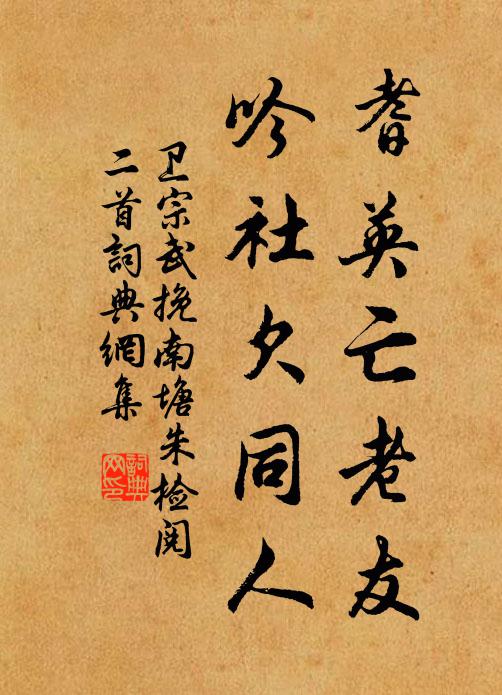 耆英亡老友
吟社欠同人
卫宗武挽南塘朱检阅
二首詞典網集
詞典网印